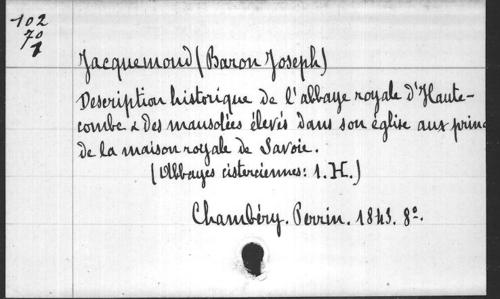 102
70
1
Jacquemoud (Baron Joseph)
Description historique de l'abbaye royale d'Haute-
combe & des mausolées élevés dans son église aux princ
de la maison royale de Savoie.
(Abbayes cisterciennes: 1.H.)
Chambéry. Perrin. 1843. 8º.